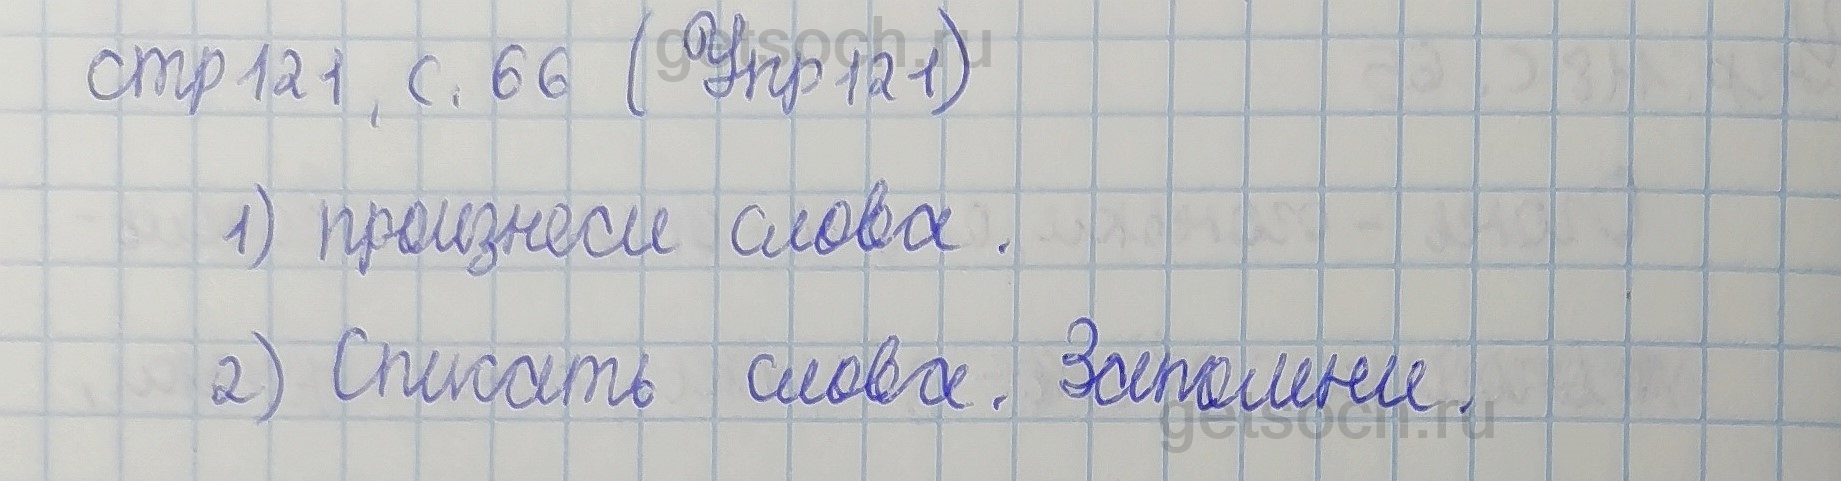 стр 121, с. 66 (Упр 121)
1) произнеси слова.
2) Списать слова. Запомни.
getsoch.ru
getsoch.ru